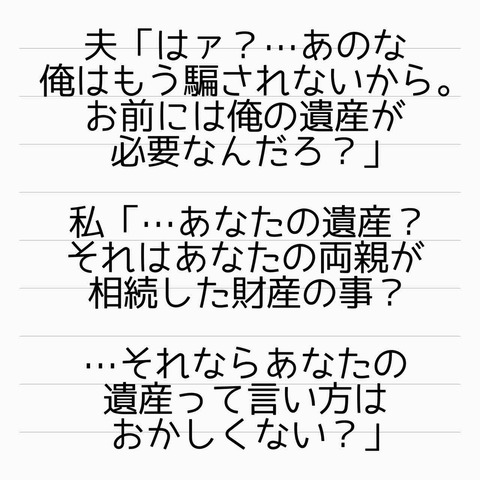 夫「はァ？…あのな
俺はもう騙されないから。
お前には俺の遺産が
必要なんだろ？」
私「…あなたの遺産？
それはあなたの両親が
相続した財産の事？
…それならあなたの
遺産って言い方は
おかしくない？」